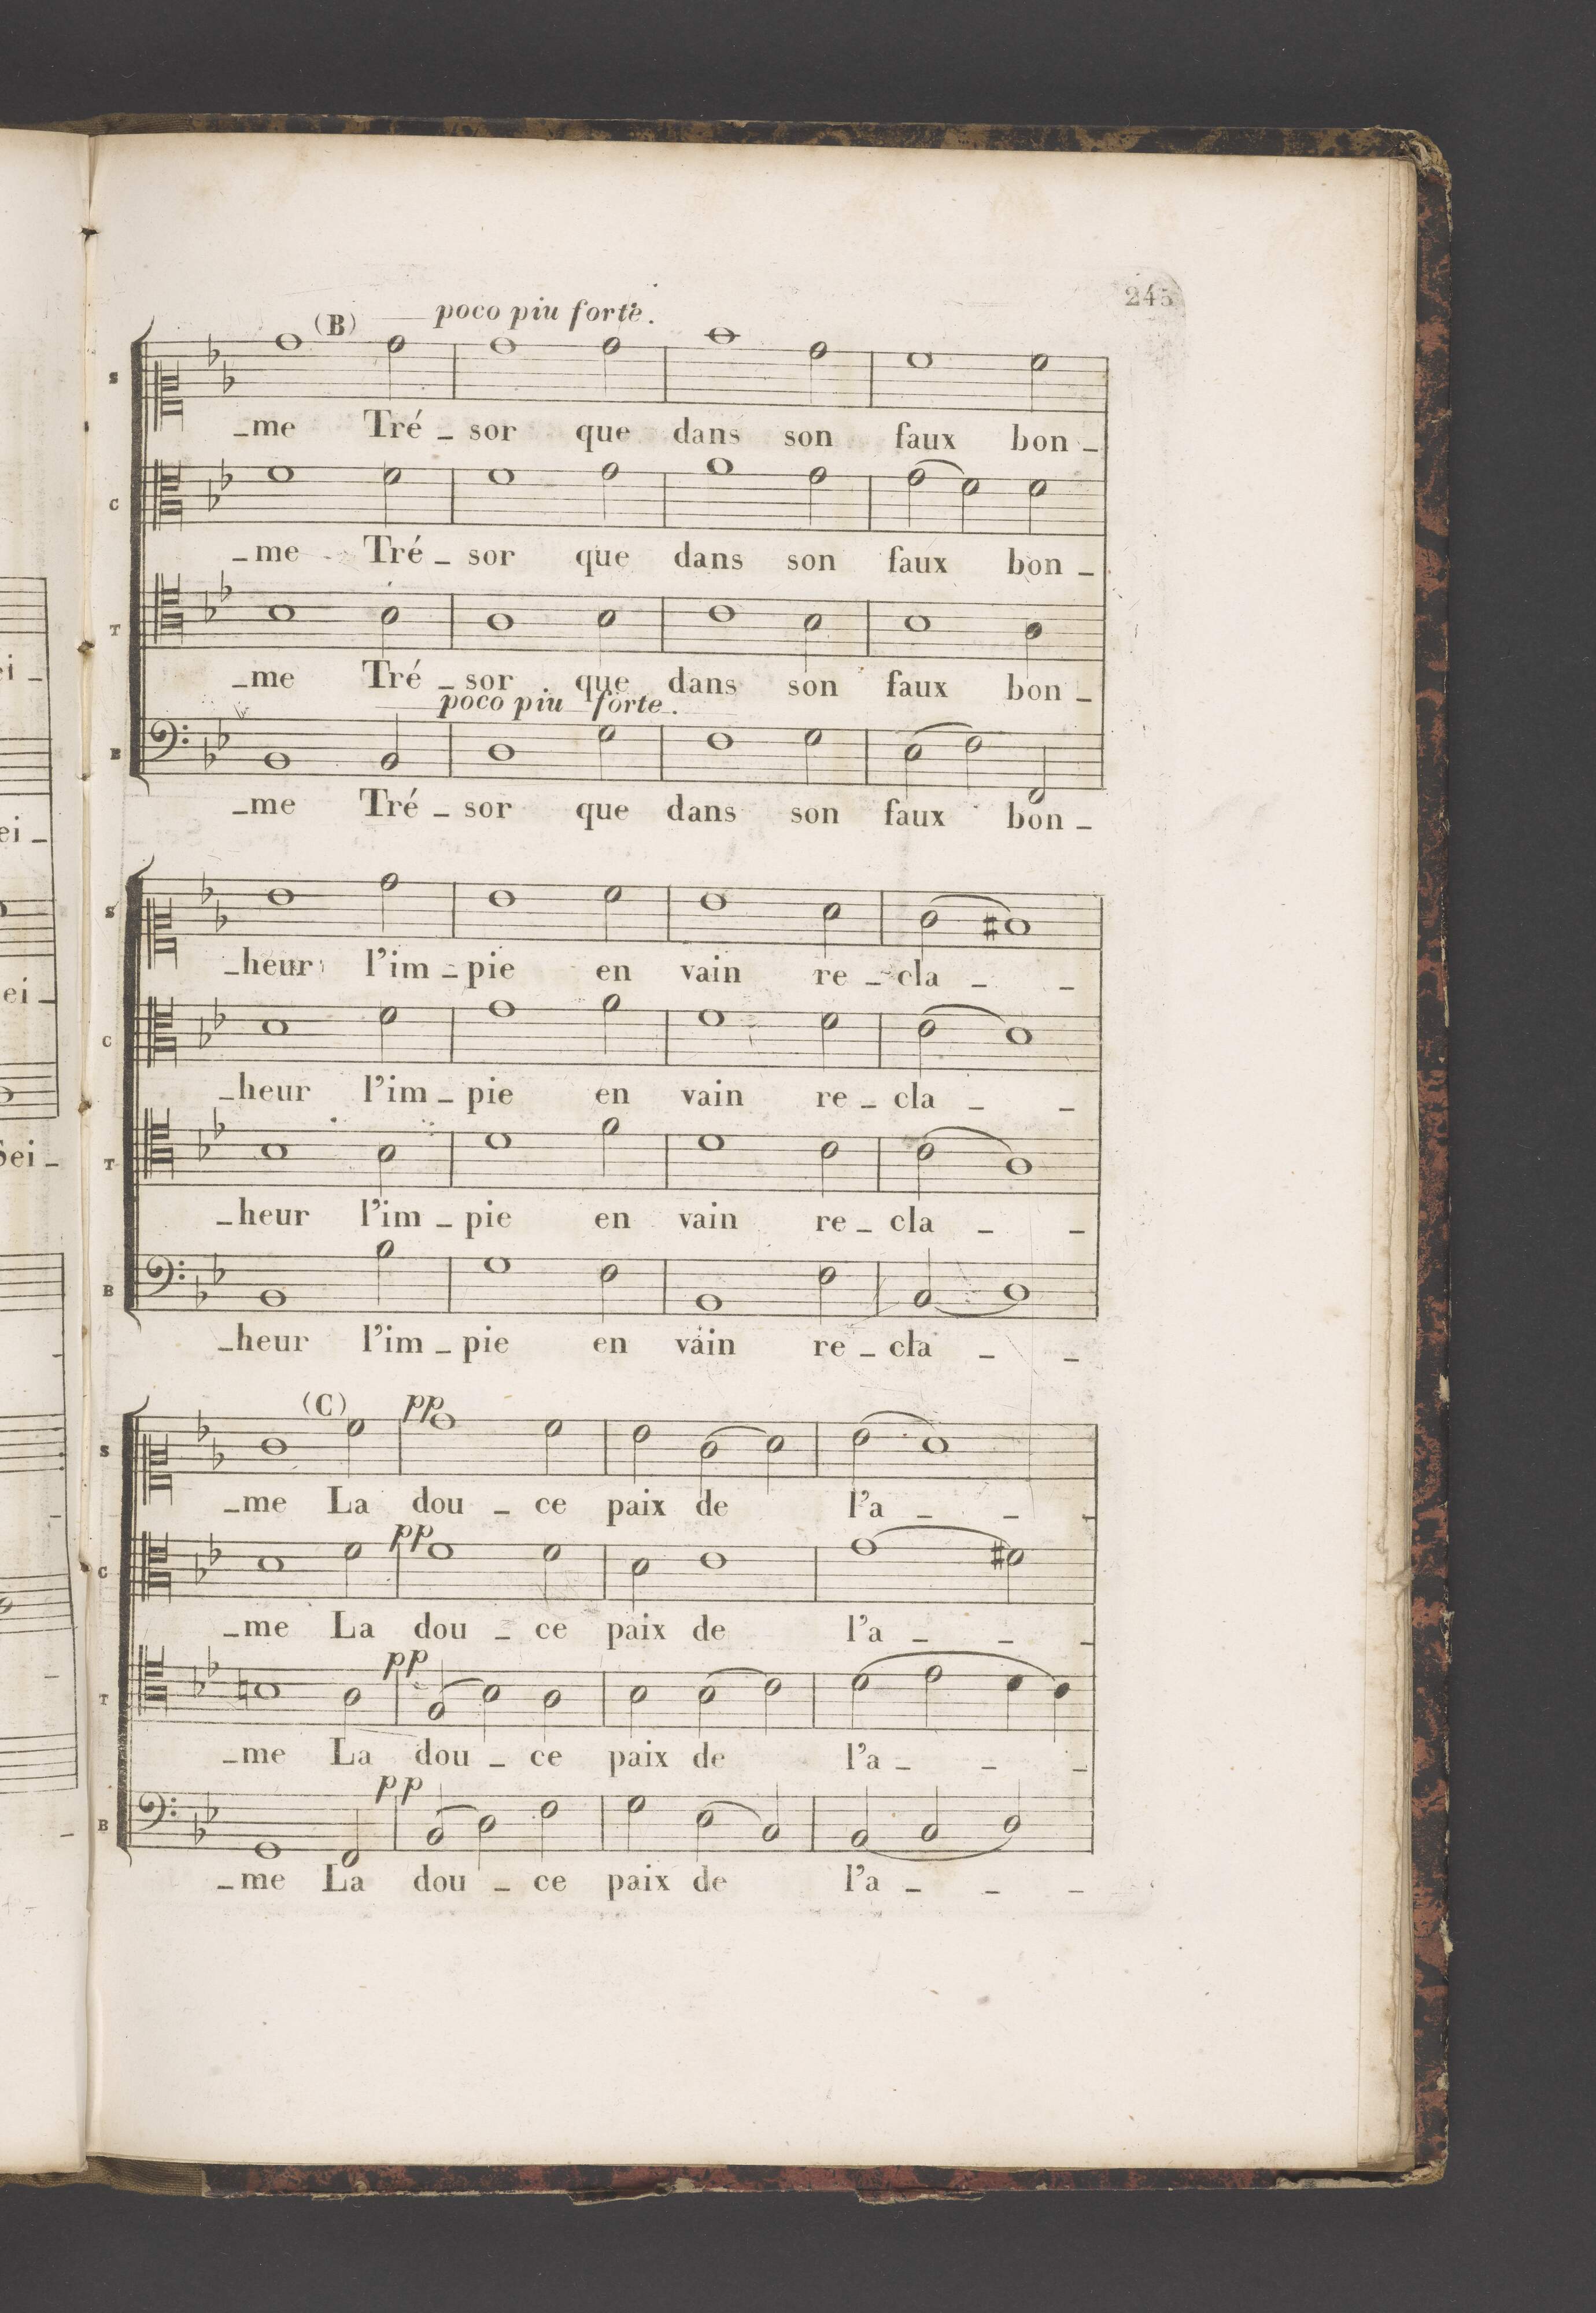 245
(B) poco piu forte.
S
_me Tré_sor que dans son faux bon_
C
_me Tré_sor que dans son faux bon_
T
_me Tré_sor que dans son faux bon_
poco piu forte.
B
_me Tré_sor que dans son faux bon_
S
_heur l'im_pie en vain re_cla_ _
C
_heur l'im_pie en vain re_cla_ _
T
_heur l'im_pie en vain re_cla_ _
B
_heur l'im_pie en vain re_cla_ _
(C) pp
S
_me La dou_ce paix de l'a_ _ _
pp
C
_me La dou_ce paix de l'a_ _ _
pp
T
_me La dou_ce paix de l'a_ _ _
pp
B
_me La dou_ce paix de l'a_ _ _
ei_
ei_
ei_
Sei_